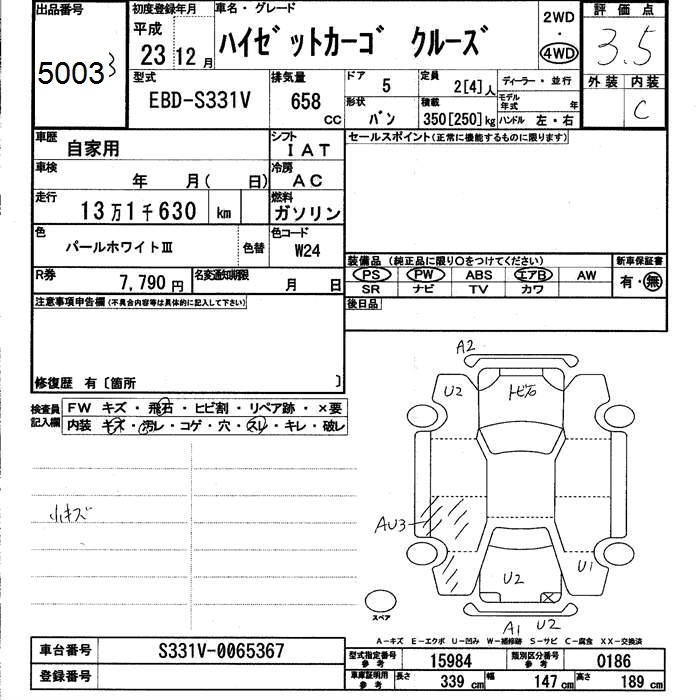 出品番号
5003 3
初度登録年月
平成
23 12 月
車名・グレード
ハイゼットカーゴ クルーズ
2WD
・
4WD
評価点
3.5
外装 内装
C
型式
EBD-S331V
排気量
658
cc
ドア
5
定員
2[4]人
ディーラー・並行
形状
バン
積載
350[250]kg
モデル年式 年
ハンドル 左・右
車歴
自家用
シフト
IAT
セールスポイント(正常に機能するものに限ります)
車検
年 月( 日)
冷房
AC
走行
13万1千630 km
燃料
ガソリン
色
パールホワイトⅢ
色替
色コード
W24
装備品(純正品に限り○をつけてください)
新車保証書
PS PW ABS エアB AW
SR ナビ TV カワ
有・無
R券
7,790円
名変通知期限
月 日
後日品
注意事項申告欄(不具合内容等は具体的に記入して下さい)
修復歴 有〔箇所 〕
検査員
記入欄
FW キズ・飛石・ヒビ割・リペア跡・×要
内装 キズ・汚レ・コゲ・穴・スレ・キレ・破レ
小キズ
A2
U2
トビ石
AU3
U2
U1
A1 U2
スペア
A-キズ E-エクボ U-凹み W-補修跡 S-サビ C-腐食 XX-交換済
車台番号
S331V-0065367
登録番号
型式指定番号
参考
15984
類別区分番号
参考
0186
車庫証明用
参考
長さ
339 cm
幅
147 cm
高さ
189 cm